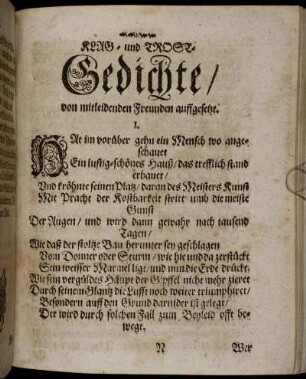 KLAG- und TROST-
Gedichte/
von mitleidenden Freunden auffgesetzt.
I.
HAt im vorüber gehn ein Mensch wo ange-
schauet
Ein lustig-schönes Hauß/das trefflich stand
erbauet/
Vnd kröhnte seinen Platz/daran des Meisters Kunst
Mit Pracht der Kostbarkeit stritt umb die meiste
Gunst
Der Augen/ und wird dann gewahr nach tausend
Tagen/
Wie daß der stoltze Bau herunter sey geschlagen
Vom Donner oder Sturm/ wie hie und da zerstückt
Sein weisser Marmel ligt/ und nun die Erde drückt;
Wie sein vergüldes Häupt der Gipffel nicht mehr zieret
Durch seinem Glantz die Lufft noch weiter triumphiret/
Besondern auff den Grund darnider ist gelegt/
Der wird durch solchen Fall zum Beyleid offt be-
wegt.
N
Wer